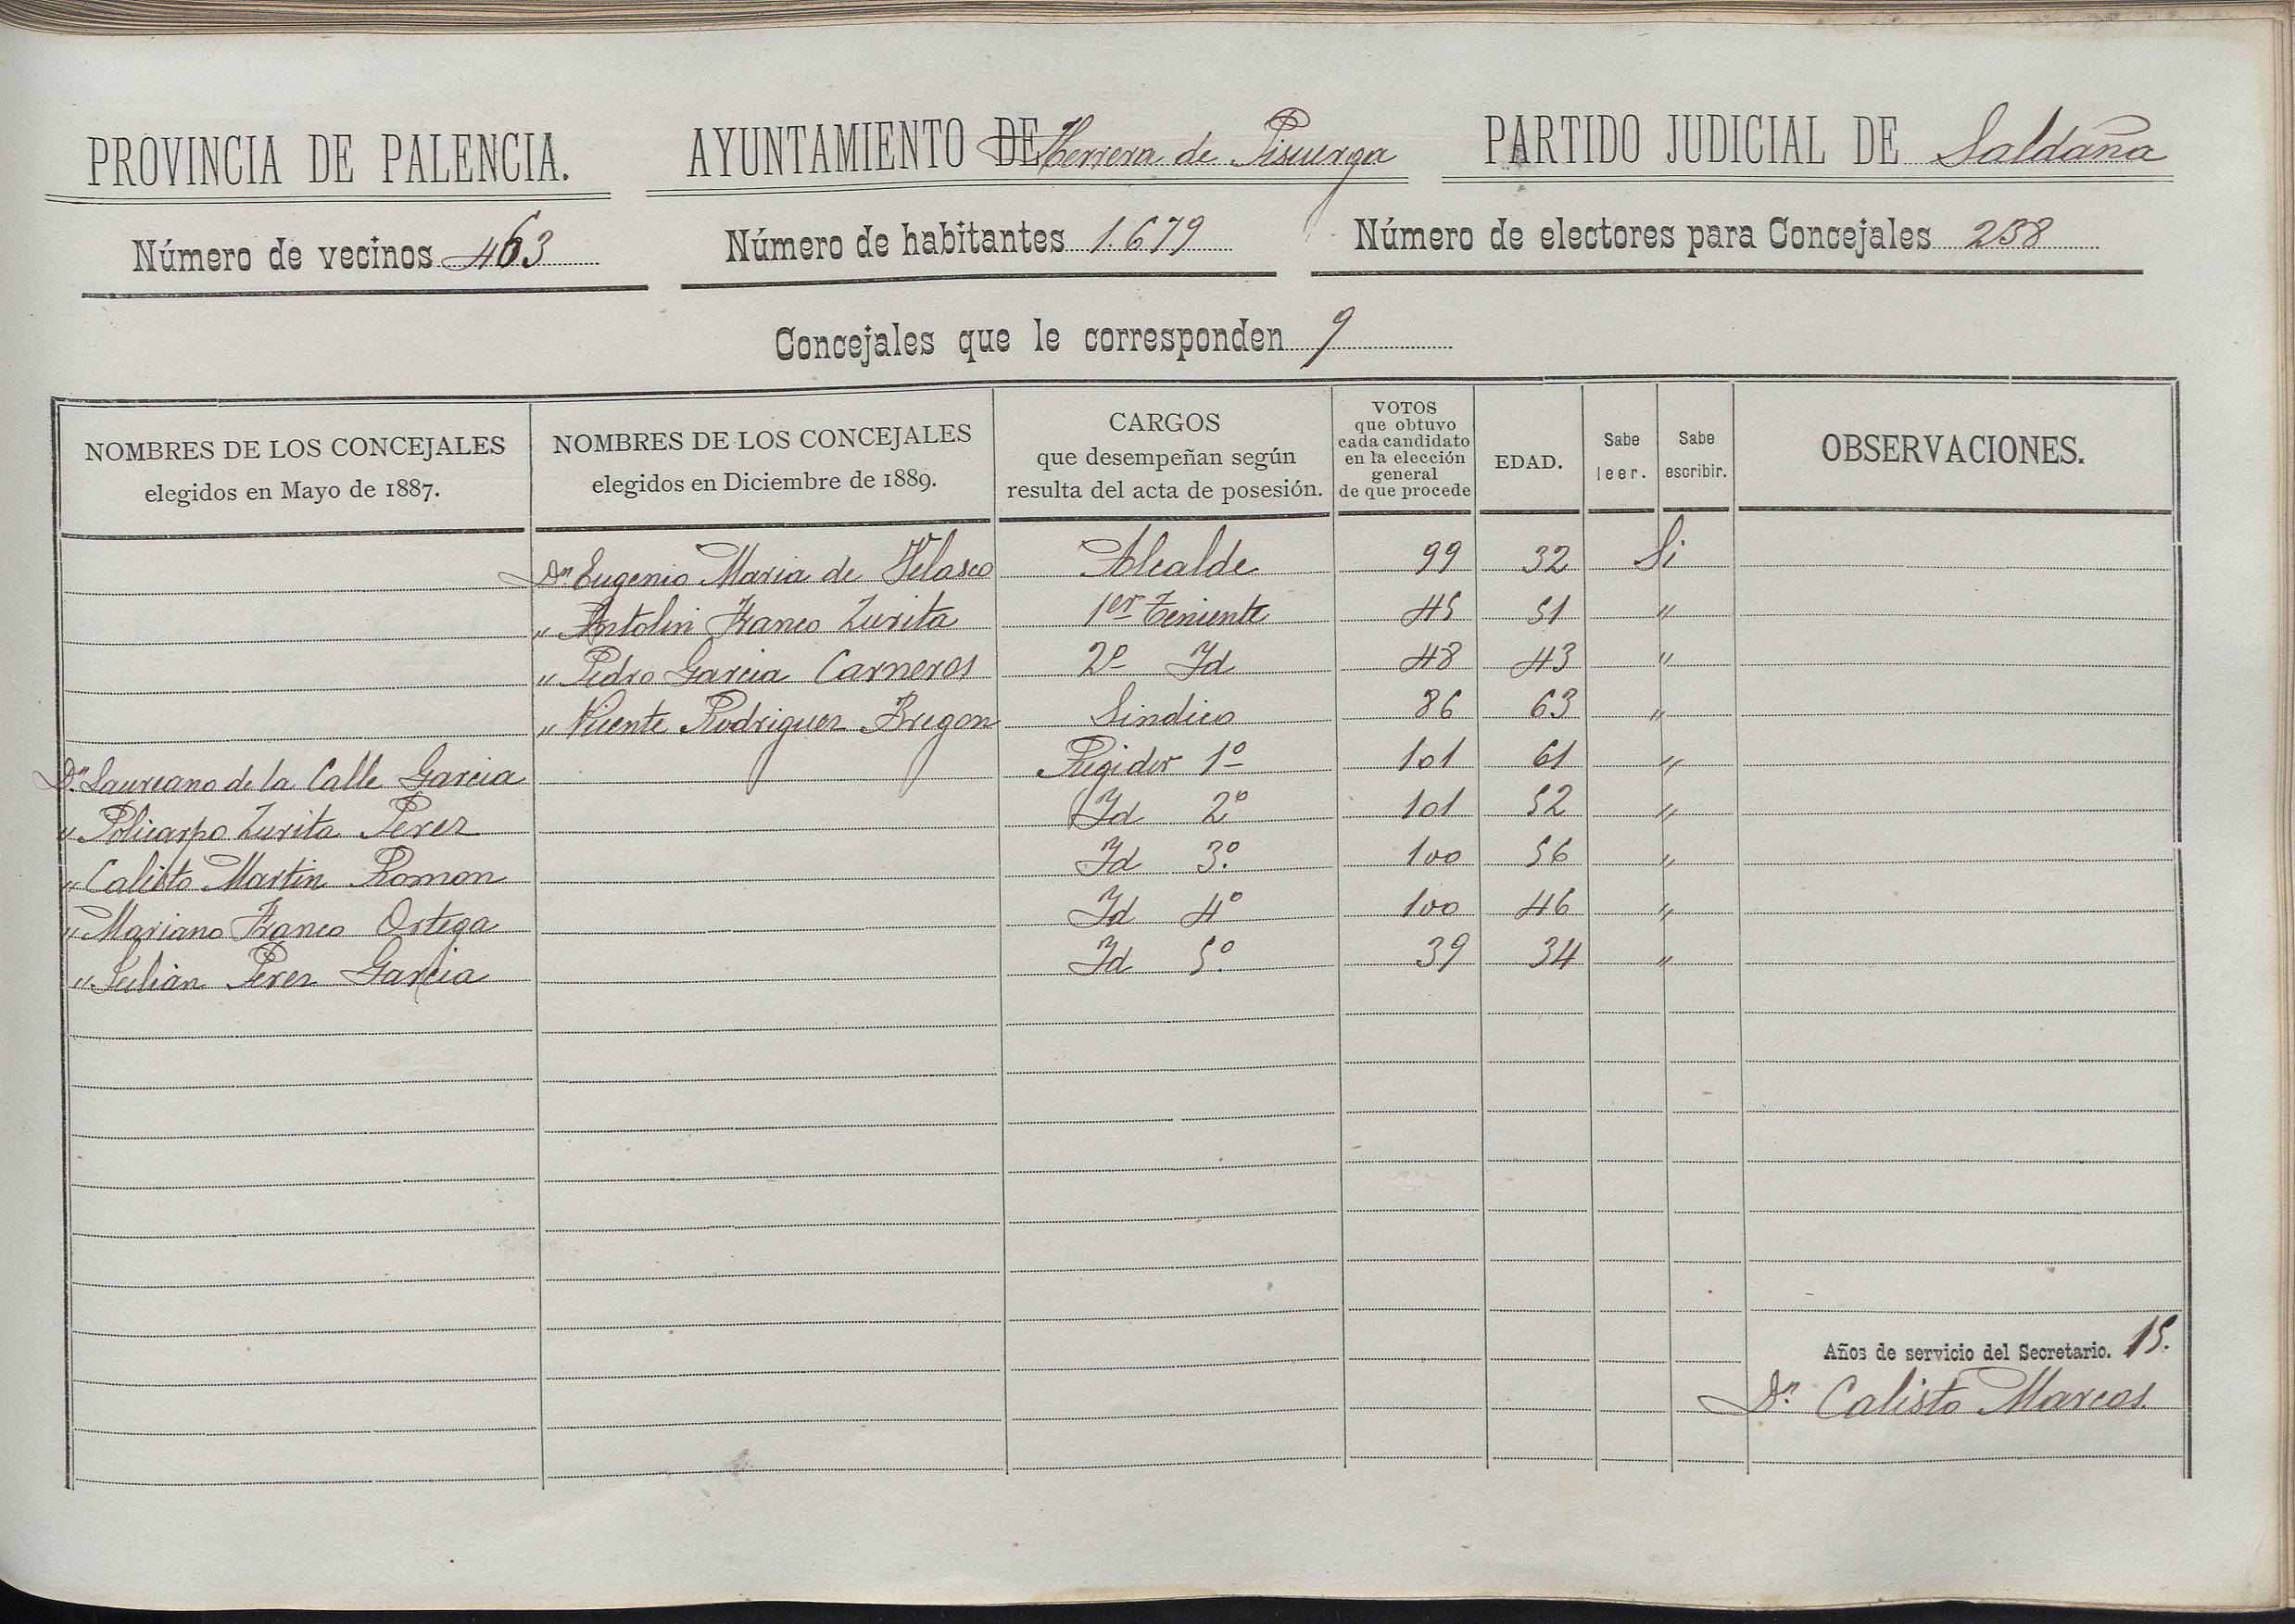 PROVINCIA DE PALENCIA. AYUNTAMIENTO DE Herrera de Pisuerga PARTIDO JUDICIAL DE Saldaña
Número de vecinos 463 Número de habitantes 1.679 Número de electores para Concejales 238
Concejales que le corresponden 9
NOMBRES DE LOS CONCEJALES
elegidos en Mayo de 1887.
NOMBRES DE LOS CONCEJALES
elegidos en Diciembre de 1889.
CARGOS
que desempeñan según
resulta del acta de posesión.
VOTOS
que obtuvo
cada candidato
en la elección
general
de que procede
EDAD.
Sabe
leer.
Sabe
escribir.
OBSERVACIONES.
Dn Eugenio Maria de Velasco Alcalde 99 32 Si
" Antolin Franco Zurita 1er Teniente 45 51 "
" Pedro Garcia Carneros 2º Id 48 43 "
" Vicente Rodriguez Bregon Sindico 86 63 "
Dn Laureano de la Calle Garcia Regidor 1º 101 61 "
" Policarpo Zurita Perez Id 2º 101 52 "
" Calisto Martin Roman Id 3º 100 56 "
" Mariano Franco Ortega Id 4º 100 46 "
" Julian Perez Garcia Id 5º 39 34 "
Años de servicio del Secretario. 15.
Dn Calisto Marcos.